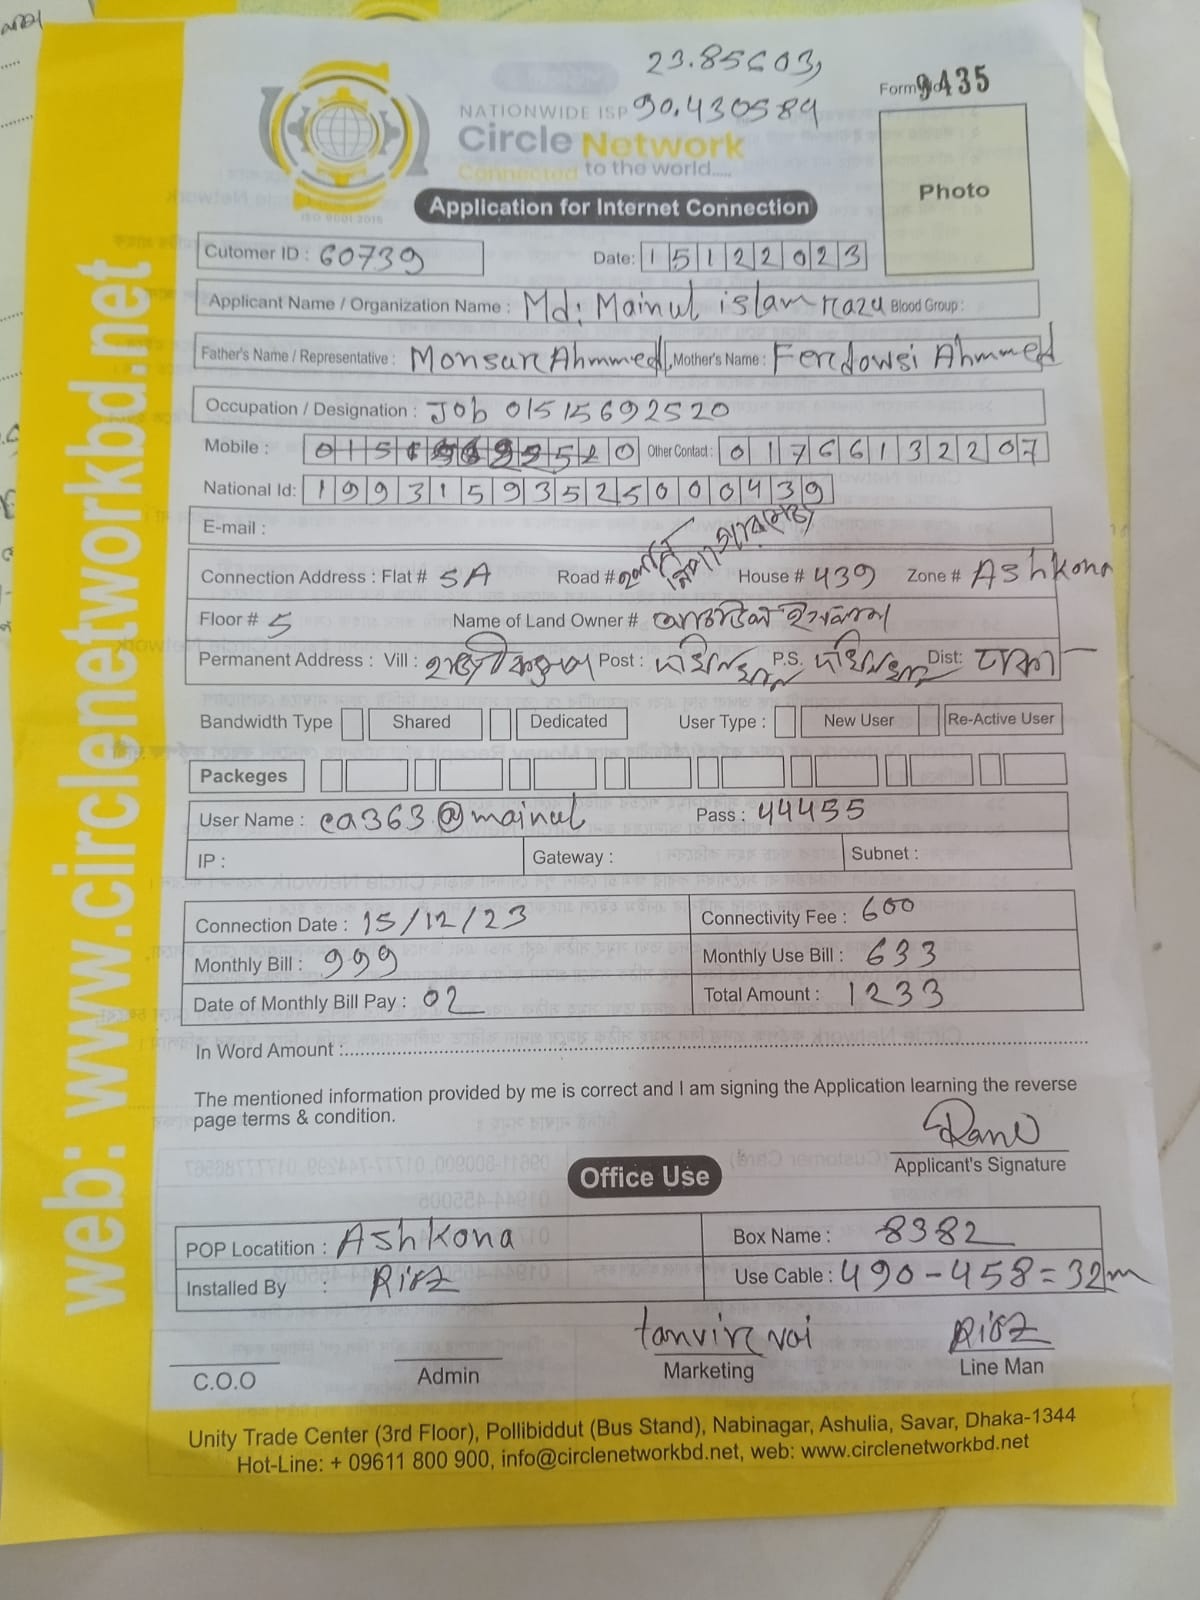 23.85603,
90.430584
Form 9435
NATIONWIDE ISP
Circle Network
Connected to the world.....
ISO 9001 2015
Photo
Application for Internet Connection
Cutomer ID : 60739 Date: 15122023
Applicant Name / Organization Name : Md: Mainul islam razu Blood Group :
Father's Name / Representative : Monsur Ahmmed, Mother's Name : Ferdowsi Ahmmed
Occupation / Designation : Job 01515692520
Mobile : Other Contact : 01766132207
National Id: 19931593525000439
E-mail :
Connection Address : Flat # 5A Road # House # 439 Zone # Ashkona
Floor # 5 Name of Land Owner #
Permanent Address : Vill : Post : P.S. Dist: ঢাকা
Bandwidth Type Shared Dedicated User Type : New User Re-Active User
Packeges
User Name : ca363@mainul Pass : 44455
IP : Gateway : Subnet :
Connection Date : 15/12/23 Connectivity Fee : 600
Monthly Bill : 999 Monthly Use Bill : 633
Date of Monthly Bill Pay : 02 Total Amount : 1233
In Word Amount :
The mentioned information provided by me is correct and I am signing the Application learning the reverse
page terms & condition.
Applicant's Signature
Office Use
POP Locatition : Ashkona Box Name : 8382
Installed By : Use Cable : 490-458=32m
tanvir vai
C.O.O Admin Marketing Line Man
Unity Trade Center (3rd Floor), Pollibiddut (Bus Stand), Nabinagar, Ashulia, Savar, Dhaka-1344
Hot-Line: + 09611 800 900, info@circlenetworkbd.net, web: www.circlenetworkbd.net
web: www.circlenetworkbd.net